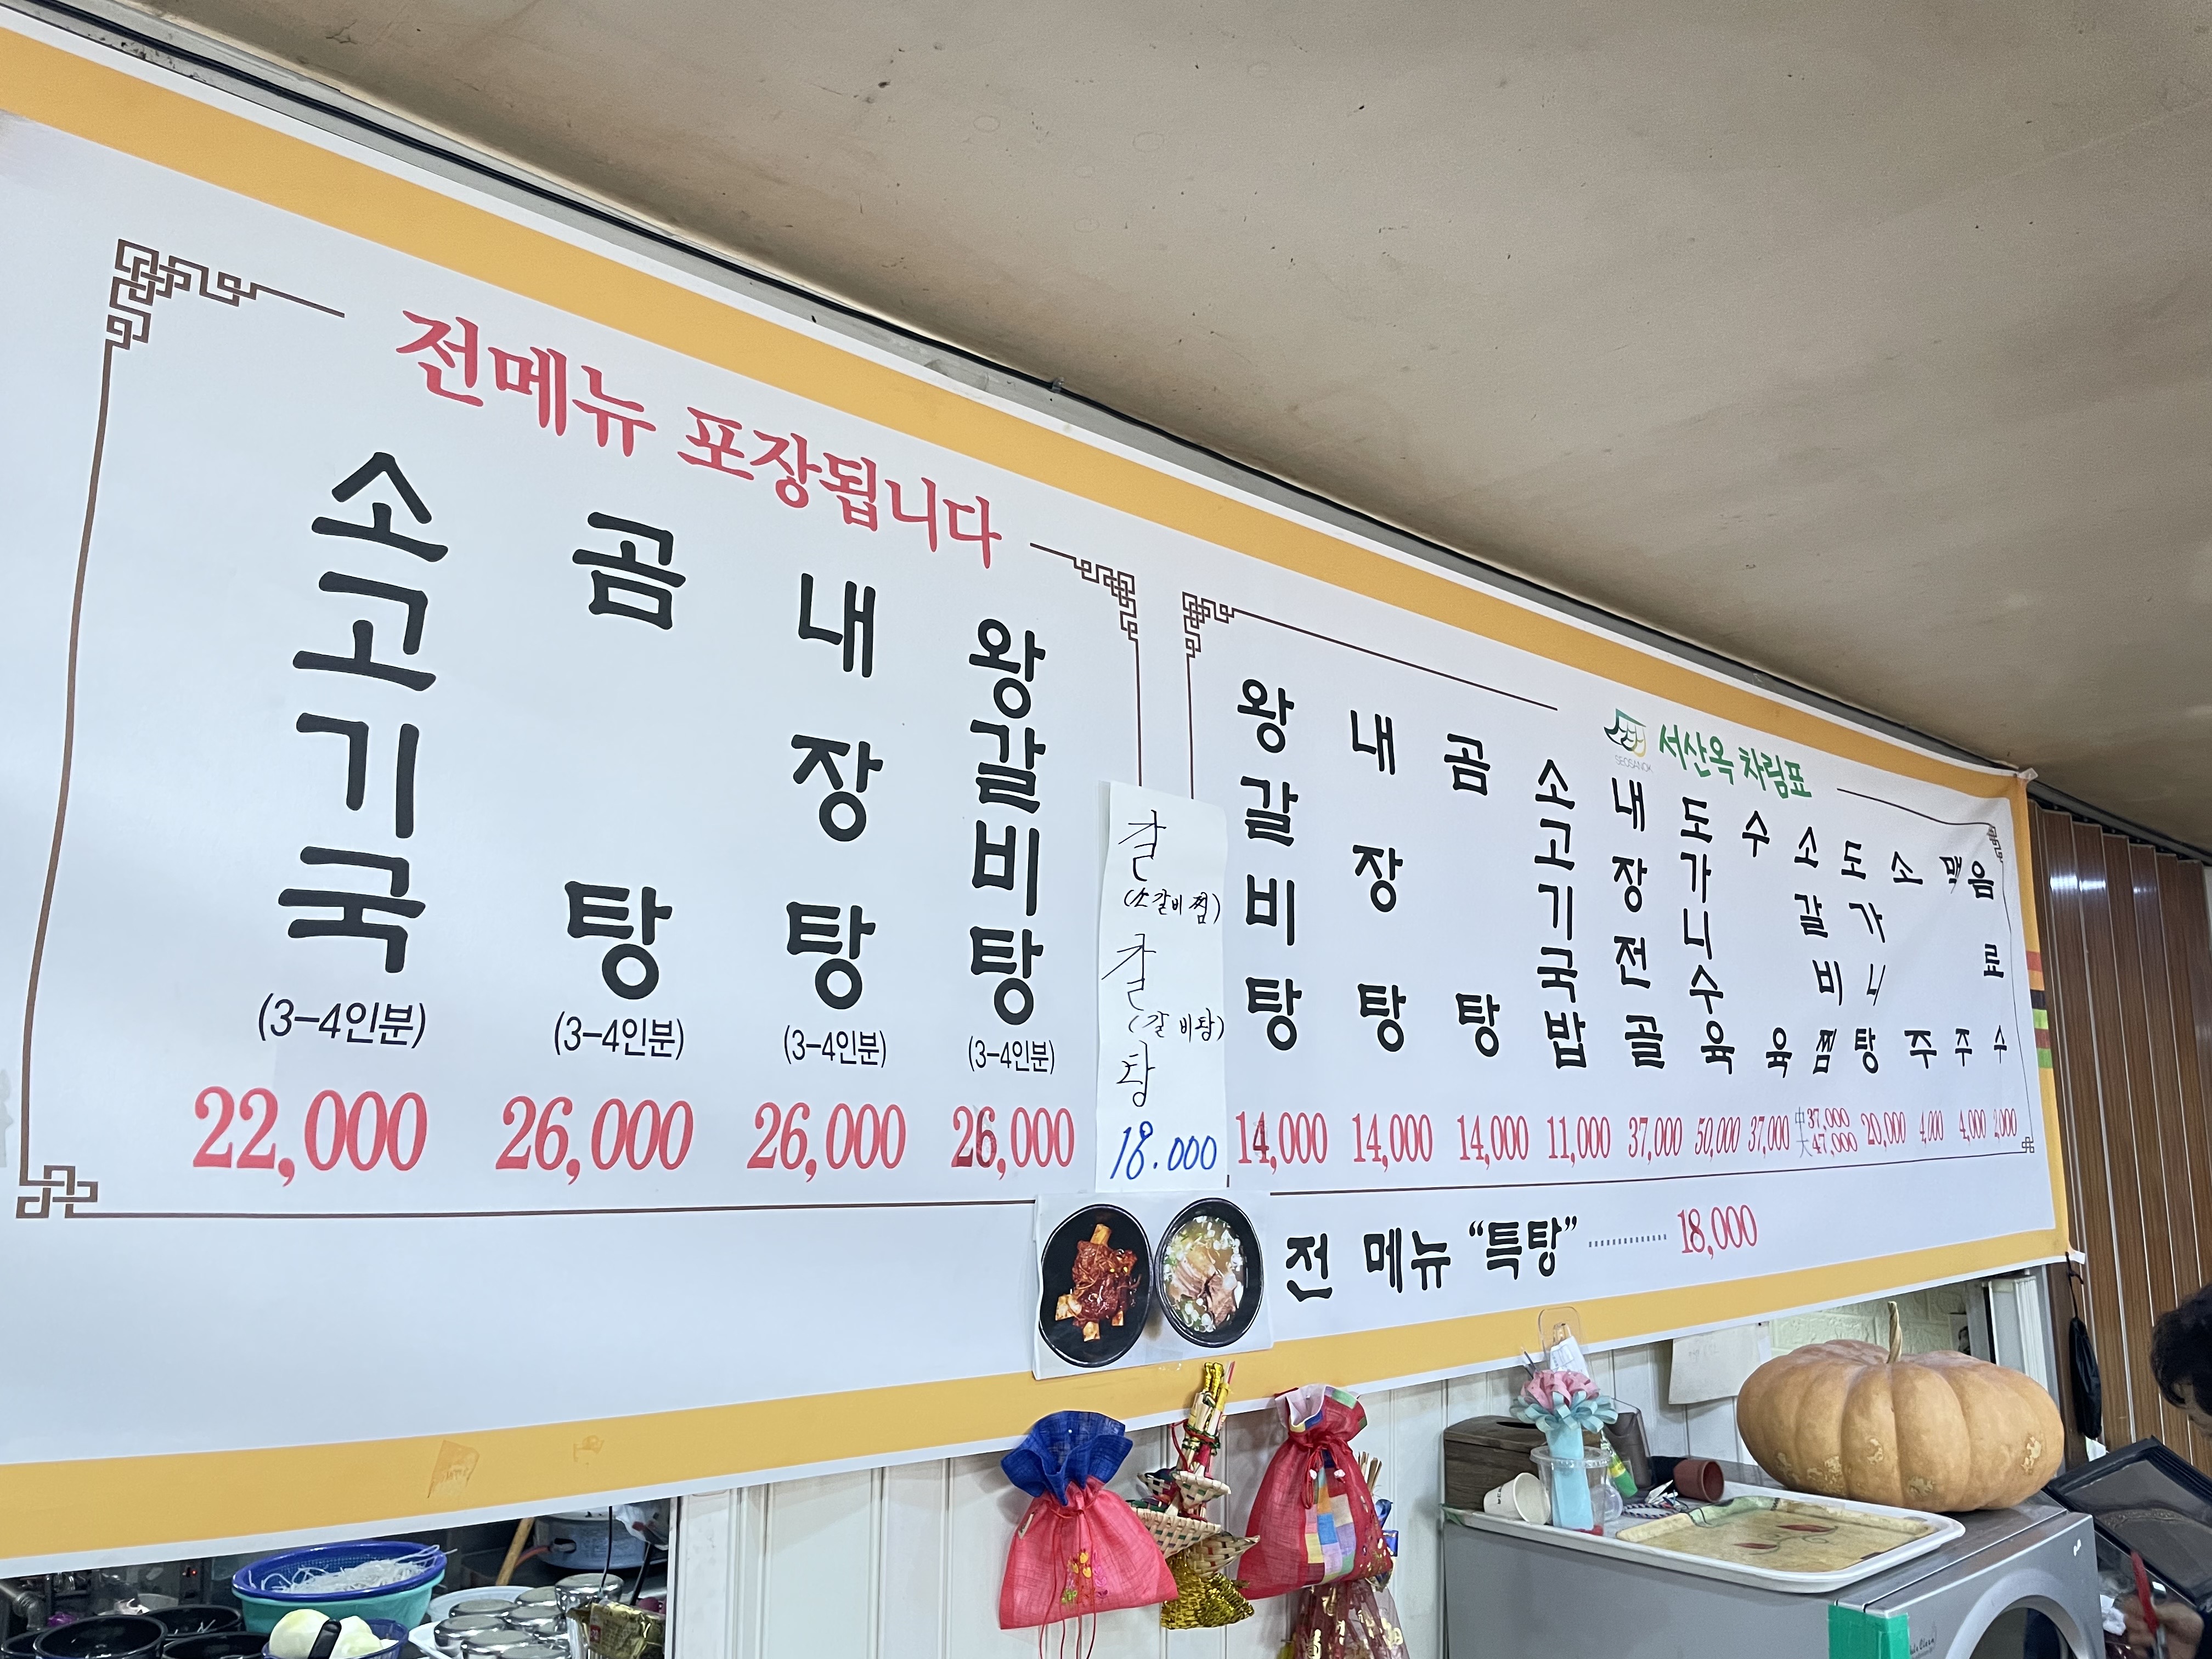 전메뉴 포장됩니다
소고기국
(3-4인분)
22,000
곰탕
(3-4인분)
26,000
내장탕
(3-4인분)
26,000
왕갈비탕
(3-4인분)
26,000
갈
(소갈비찜)
갈
(갈비탕)
탕
18.000
SEOSANOK
서산옥 차림표
왕갈비탕
14,000
내장탕
14,000
곰탕
14,000
소고기국밥
11,000
내장전골
37,000
도가니수육
50,000
수육
37,000
소갈비찜
中 37,000
大 47,000
도가니탕
20,000
소주
4,000
맥주
4,000
음료수
2,000
전 메뉴 “특탕” ············· 18,000